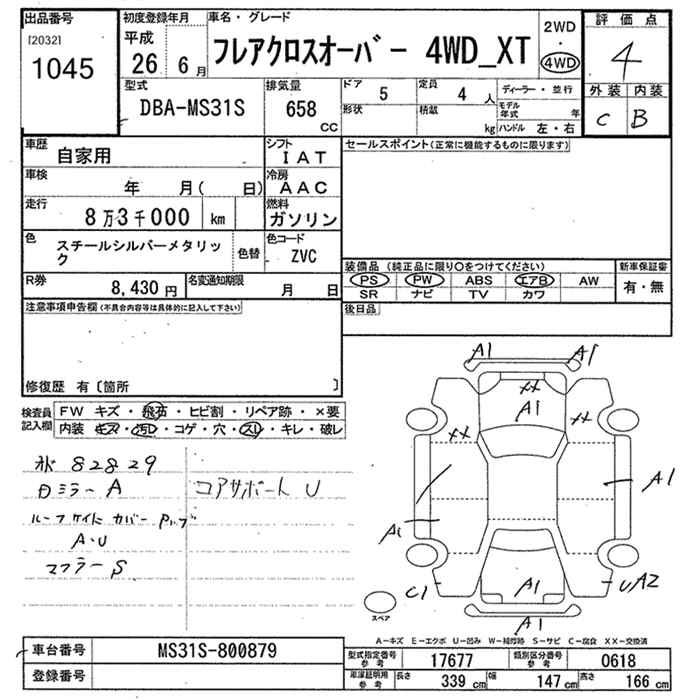 出品番号
[2032]
1045
初度登録年月
平成
26 6月
車名・グレード
フレアクロスオーバー 4WD_XT
2WD
・
4WD
評価点
4
外装 内装
C B
型式
DBA-MS31S
排気量
658 cc
ドア 5
形状
定員 4 人
積載 kg
ディーラー・並行
モデル年式 年
ハンドル 左・右
車歴
自家用
シフト
IAT
車検
年 月( 日)
冷房
AAC
走行
8万3千000 km
燃料
ガソリン
色
スチールシルバーメタリック
色替
色コード
ZVC
R券
8,430 円
名変通知期限
月 日
セールスポイント(正常に機能するものに限ります)
装備品(純正品に限り○をつけてください)
PS PW ABS エアB AW
SR ナビ TV カワ
新車保証書
有・無
後日品
注意事項申告欄(不具合内容等は具体的に記入して下さい)
修復歴 有〔箇所 〕
検査員記入欄
FW キズ・飛石・ヒビ割・リペア跡・×要
内装 キズ・汚れ・コゲ・穴・スレ・キレ・破レ
82829
ミラー A
コアサポート U
A・U
マフラー S
A1 A1
XX
A1
XX
XX
A1
A1
C1
A1
UA2
スペア
A-キズ E-エクボ U-凹み W-補修跡 S-サビ C-腐食 XX-交換済
車台番号
MS31S-800879
登録番号
型式指定番号 参考
17677
類別区分番号 参考
0618
車庫証明用 参考
長さ 339 cm
幅 147 cm
高さ 166 cm